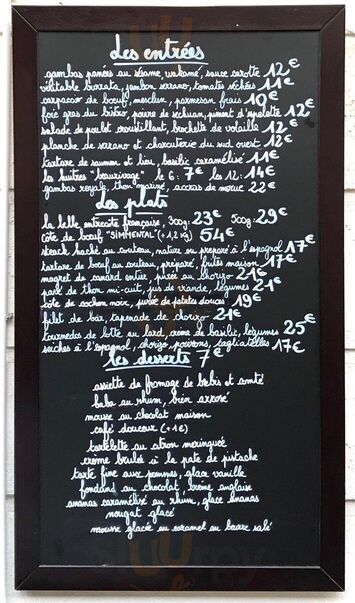 Les entrées
gambas panées au sésame, wakamé, sauce carotte 12€
véritable burrata, jambon serrano, tomates séchées 11€
carpaccio de bœuf, mesclun, parmesan frais 10€
foie gras du bistro, poivre de sechuan, piment d'espelette 12€
salade de poulet croustillant, brochette de volaille 12€
planche de serrano et charcuterie du sud ouest 12€
tartare de saumon et lieu, basilic caramélisé 11€
la huitres "bouzigue" le 6: 7€ les 12: 14€
gambas royale, thon mariné, accras de morue 22€
Les plats
la belle entrecôte française, 300g: 23€ 500g: 29€
côte de bœuf "SIMMENTAL" (+1,2 kg) 54€
steack haché au couteau, nature ou préparé à l'espagnol 17€
tartare de bœuf au couteau, préparé, frites maison 17€
magret de canard entier, purée au chorizo 21€
pavé de thon mi-cuit, jus de viande, légumes 21€
côte de cochon noir, purée de patates douces 19€
filet de bar, tapenade de chorizo 21€
tournedos de lotte au lard, crème de basilic, légumes 25€
seiches à l'espagnol, chorizo, poivrons, tagliatelles 17€
les desserts 7€
assiette de fromage de brebis et comté
baba au rhum, bien arrosé
mousse au chocolat maison
café douceur (+1€)
tartelette au citron meringuée
crème brulée à la pate de pistache
tarte fine aux pommes, glace vanille
fondant au chocolat, crème anglaise
ananas caramélisé au rhum, glace ananas
nougat glacé
mousse glacée au caramel au beurre salé